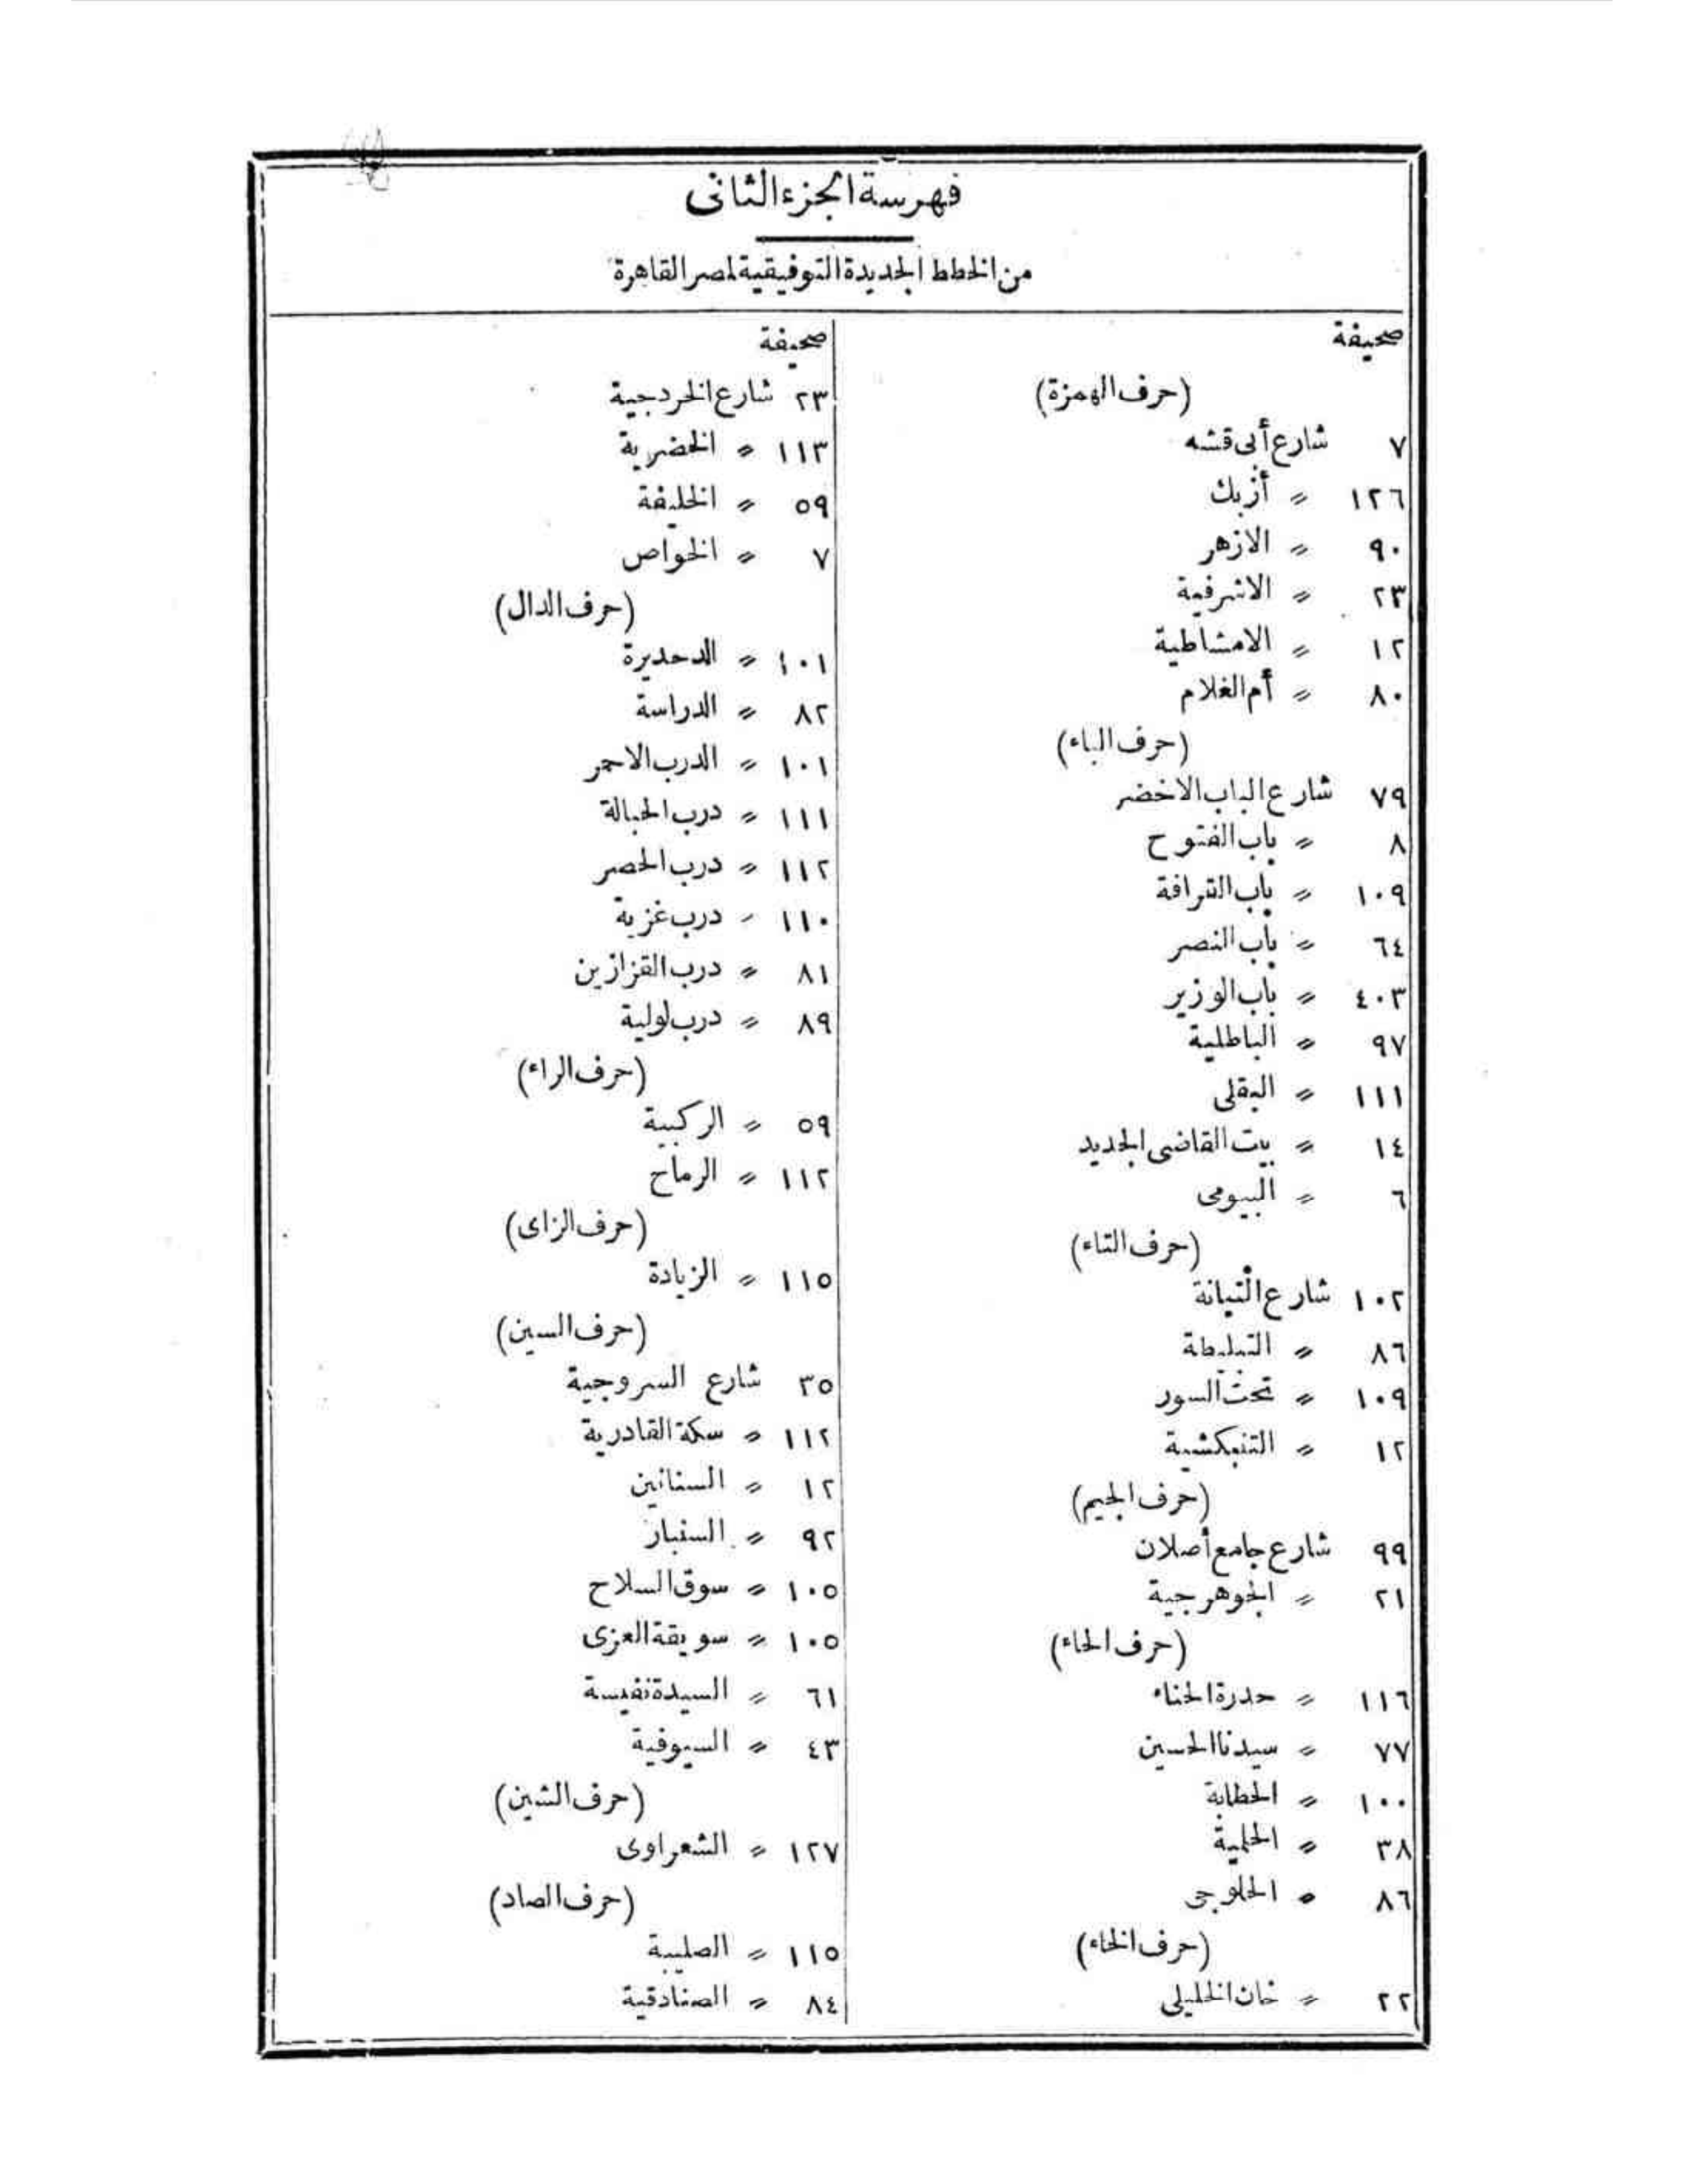 فهرسة الجزء الثانى
من الخطط الجديدة التوفيقية لمصر القاهرة
صحيفة
(حرف الهمزة)
٧ شارع أبى قشه
١٢٦ 〃 أزبك
٩٠ 〃 الازهر
٢٣ 〃 الاشرفية
١٢ 〃 الامشاطية
٨٠ 〃 أم الغلام
(حرف الباء)
٧٩ شارع الباب الاخضر
٨ 〃 باب الفتوح
١٠٩ 〃 باب القرافة
٦٤ 〃 باب النصر
٤٠٣ 〃 باب الوزير
٩٧ 〃 الباطلية
١١١ 〃 البقلى
١٤ 〃 بيت القاضى الجديد
٦ 〃 البيومى
(حرف التاء)
١٠٢ شارع التبانة
٨٦ 〃 التبليطة
١٠٩ 〃 تحت السور
١٢ 〃 التنبكشية
(حرف الجيم)
٩٩ شارع جامع أصلان
٢١ 〃 الجوهرجية
(حرف الحاء)
١١٦ 〃 حدرة الحناء
٧٧ 〃 سيدنا الحسين
١٠٠ 〃 الحطابة
٣٨ 〃 الحلمية
٨٦ 〃 الحلوجى
(حرف الخاء)
٢٢ 〃 خان الخليلى
صحيفة
٢٣ شارع الخردجية
١١٣ 〃 الخضرية
٥٩ 〃 الخليفة
٧ 〃 الخواص
(حرف الدال)
١٠١ 〃 الدحديرة
٨٢ 〃 الدراسة
١٠١ 〃 الدرب الاحمر
١١١ 〃 درب الحبالة
١١٢ 〃 درب الحصر
١١٠ 〃 درب غزية
٨١ 〃 درب القزازين
٨٩ 〃 درب لولية
(حرف الراء)
٥٩ 〃 الركبية
١١٢ 〃 الرماح
(حرف الزاى)
١١٥ 〃 الزيادة
(حرف السين)
٣٥ شارع السروجية
١١٢ 〃 سكة القادرية
١٢ 〃 السنانين
٩٢ 〃 السنبار
١٠٥ 〃 سوق السلاح
١٠٥ 〃 سويقة العزى
٦١ 〃 السيدة نفيسة
٤٣ 〃 السيوفية
(حرف الشين)
١٢٧ 〃 الشعراوى
(حرف الصاد)
١١٥ 〃 الصليبة
٨٤ 〃 الصنادقية